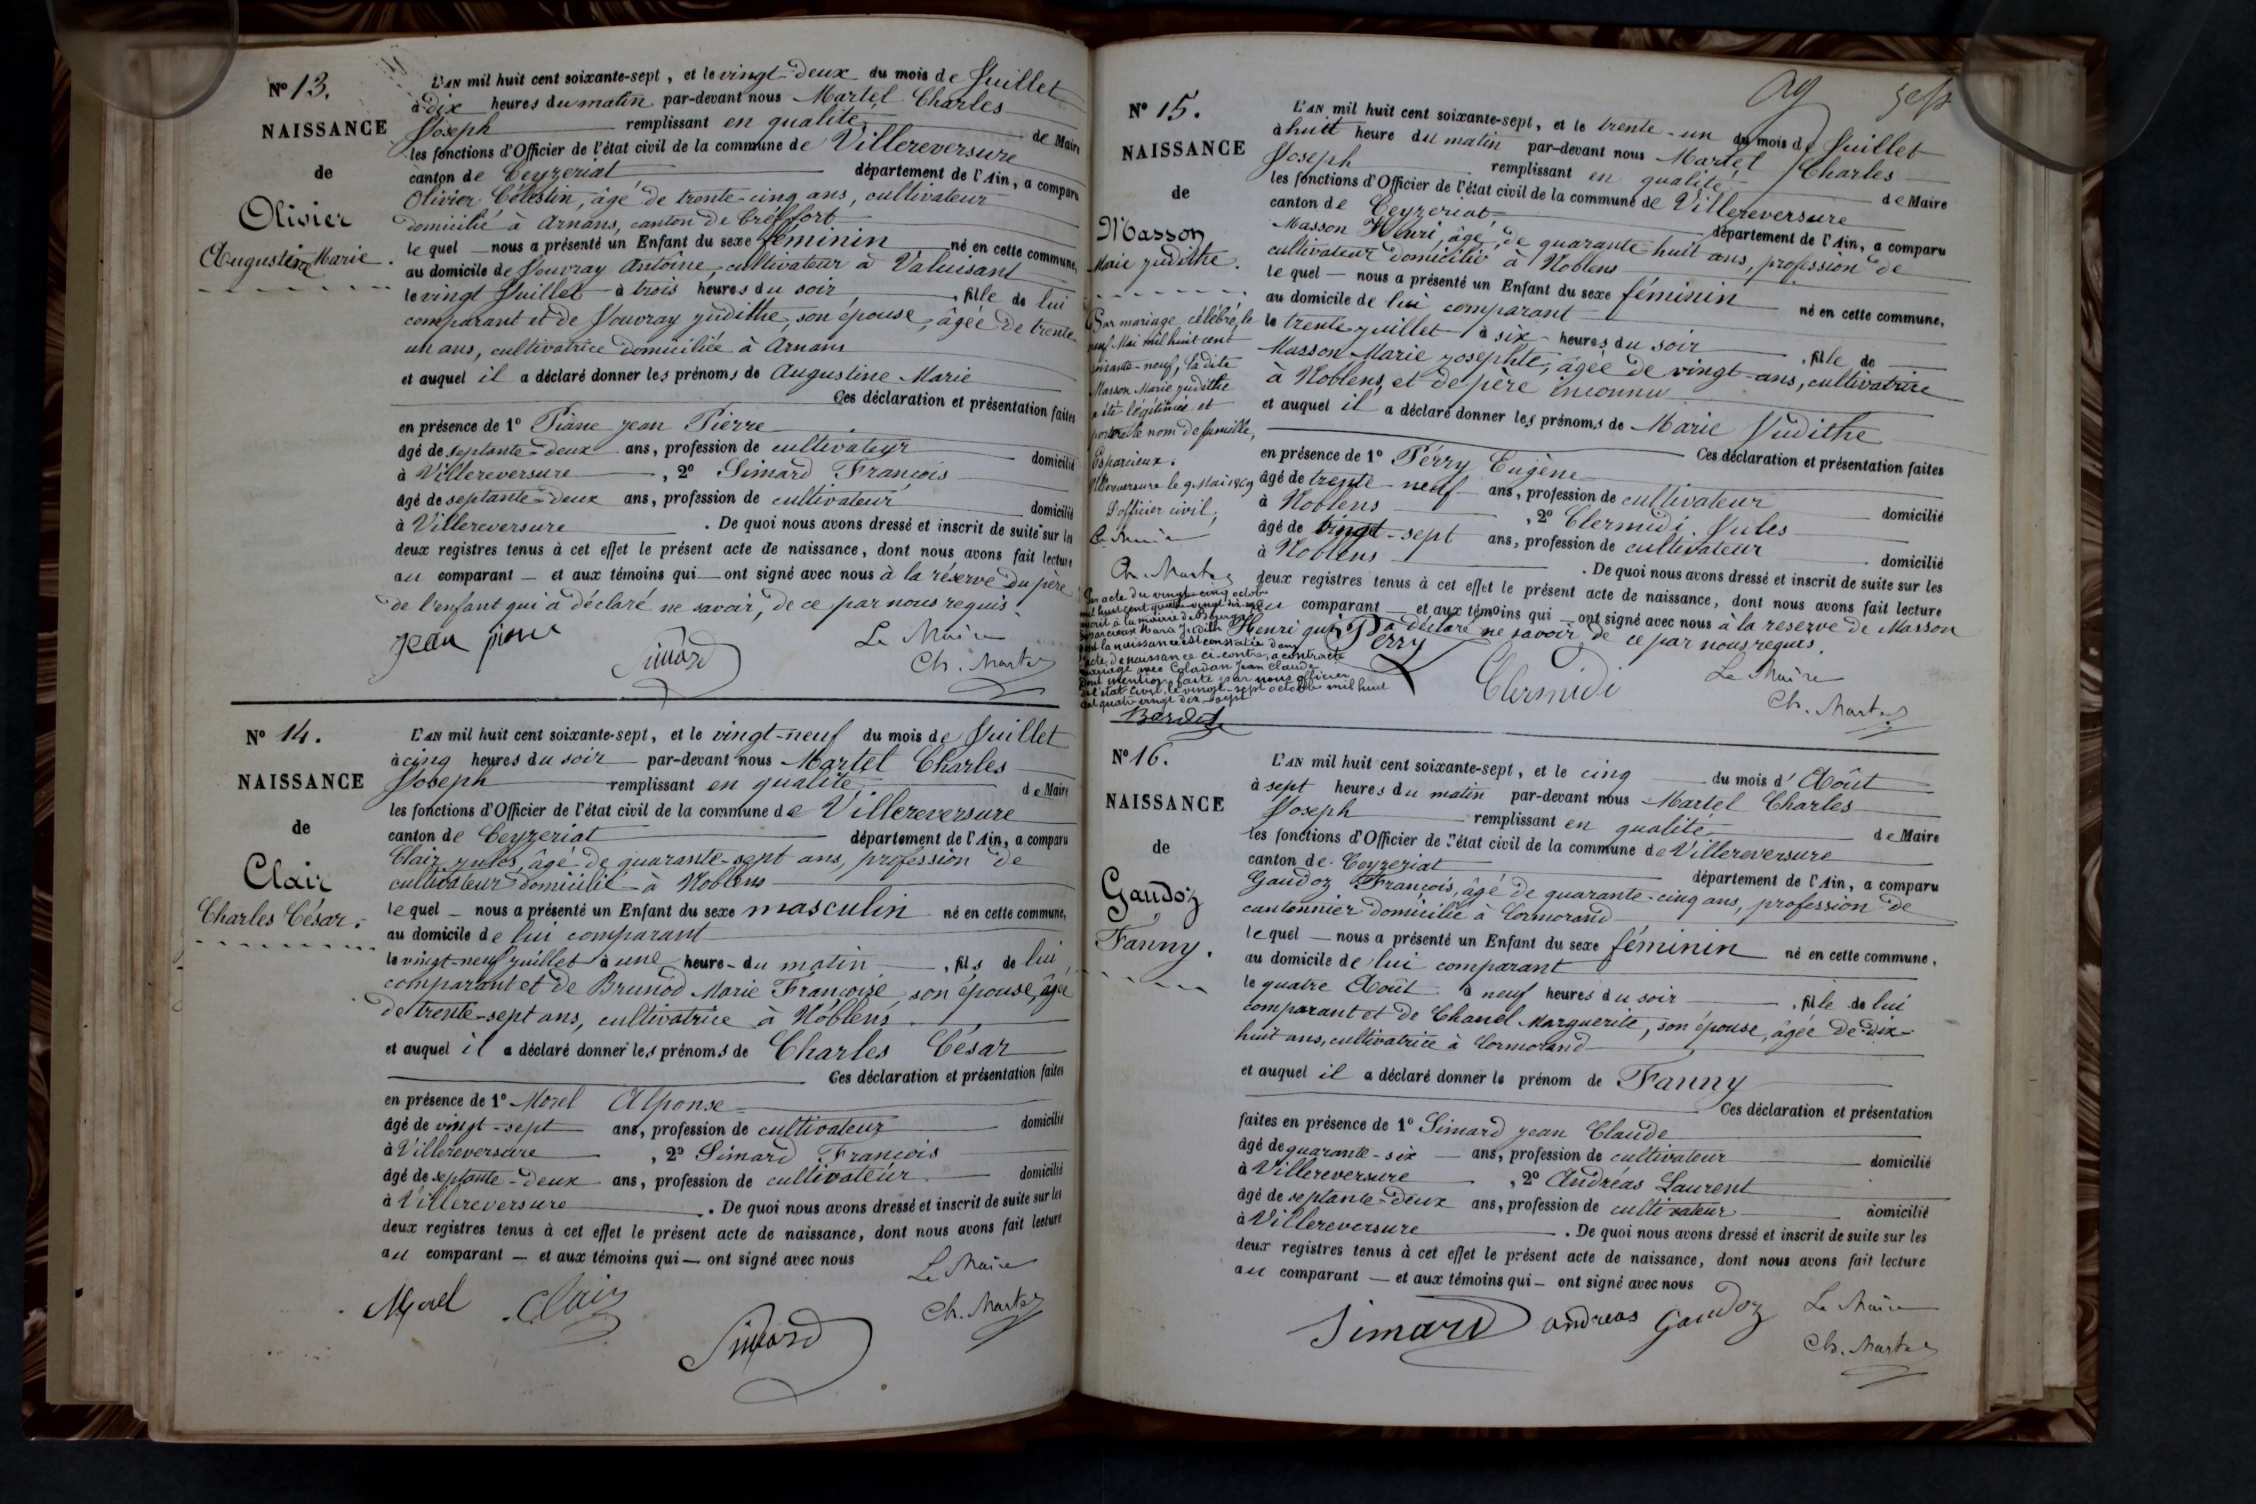 Nº 13.
NAISSANCE
de
Olivier
Augustine Marie.
L'AN mil huit cent soixante-sept, et le vingt-deux du mois de Juillet
à dix heures du matin par-devant nous Martel Charles
Joseph remplissant en qualité de Maire
les fonctions d'Officier de l'état civil de la commune de Villereversure
canton de Ceyzeriat département de l'Ain, a comparu
Olivier Célestin, âgé de trente-cinq ans, cultivateur
domicilié à Arnans, canton de Tréffort
le quel nous a présenté un Enfant du sexe féminin né en cette commune,
au domicile de Souvray Antoine, cultivateur à Valuisant
le vingt Juillet à trois heures du soir, fille de lui
comparant et de Souvray Judithe, son épouse, âgée de trente-
un ans, cultivatrice domiciliée à Arnans
et auquel il a déclaré donner les prénoms de Augustine Marie
Ces déclaration et présentation faites
en présence de 1º Piâne Jean Pierre
âgé de septante-deux ans, profession de cultivateur domicilié
à Villereversure, 2º Simard François
âgé de septante-deux ans, profession de cultivateur domicilié
à Villereversure. De quoi nous avons dressé et inscrit de suite sur les
deux registres tenus à cet effet le présent acte de naissance, dont nous avons fait lecture
au comparant — et aux témoins qui — ont signé avec nous à la réserve du père
de l'enfant qui a déclaré ne savoir, de ce par nous requis.
Jean pierre
Simard
Le Maire
Ch. Martel
Nº 14.
NAISSANCE
de
Clair
Charles César.
L'AN mil huit cent soixante-sept, et le vingt-neuf du mois de Juillet
à cinq heures du soir par-devant nous Martel Charles
Joseph remplissant en qualité de Maire
les fonctions d'Officier de l'état civil de la commune de Villereversure
canton de Ceyzeriat département de l'Ain, a comparu
Clair Jules, âgé de quarante-sept ans, profession de
cultivateur domicilié à Noblens
le quel — nous a présenté un Enfant du sexe masculin né en cette commune,
au domicile de lui comparant
le vingt-neuf Juillet à une heure du matin, fils de lui
comparant et de Brunod Marie Françoise, son épouse, âgée
de trente-sept ans, cultivatrice à Noblens
et auquel il a déclaré donner les prénoms de Charles César
Ces déclaration et présentation faites
en présence de 1º Morel Alponse
âgé de vingt-sept ans, profession de cultivateur domicilié
à Villereversure, 2º Simard François
âgé de septante-deux ans, profession de cultivateur domicilié
à Villereversure. De quoi nous avons dressé et inscrit de suite sur les
deux registres tenus à cet effet le présent acte de naissance, dont nous avons fait lecture
au comparant — et aux témoins qui — ont signé avec nous
Morel Clair
Simard
Le Maire
Ch. Martel
Nº 15.
NAISSANCE
de
Masson
Marie Judithe.
Par mariage célébré, le
neuf Mai mil huit cent
soixante-neuf, la dite
Masson Marie Judithe
a été légitimée et
portera le nom de famille,
Esparieux.
Villereversure le 9 Mai 1869
L'officier civil,
Le Maire
Ch. Martel
Par acte du vingt-cinq octobre
mil huit cent quatre-vingt dix-sept
inscrit à la mairie de Bourg
Marie Judith
dont la naissance est constatée dans
l'acte de naissance ci-contre, a contracté
mariage avec Coladan Jean Claude
Dont mention faite par nous officier
de l'état civil, le vingt-sept octobre mil huit
cent quatre-vingt dix-sept
L'AN mil huit cent soixante-sept, et le trente-un du mois de Juillet
à huit heure du matin par-devant nous Martel Charles
Joseph remplissant en qualité de Maire
les fonctions d'Officier de l'état civil de la commune de Villereversure
canton de Ceyzeriat département de l'Ain, a comparu
Masson Henri, âgé de quarante-huit ans, profession de
cultivateur domicilié à Noblens
le quel — nous a présenté un Enfant du sexe féminin né en cette commune,
au domicile de lui comparant
le trente Juillet à six heures du soir, fille de
Masson Marie Josephte, âgée de vingt-ans, cultivatrice
à Noblens, et de père inconnu
et auquel il a déclaré donner les prénoms de Marie Judithe
Ces déclaration et présentation faites
en présence de 1º Pérry Eugène
âgé de trente-neuf ans, profession de cultivateur domicilié
à Noblens, 2º Clermidi Jules
âgé de vingt-sept ans, profession de cultivateur domicilié
à Noblens. De quoi nous avons dressé et inscrit de suite sur les
deux registres tenus à cet effet le présent acte de naissance, dont nous avons fait lecture
au comparant — et aux témoins qui — ont signé avec nous à la réserve de Masson
Henri qui a déclaré ne savoir, de ce par nous requis.
Perry
Clermidi
Le Maire
Ch. Martel
Nº 16.
NAISSANCE
de
Gaudoz
Fanny.
L'AN mil huit cent soixante-sept, et le cinq du mois d'Août
à sept heures du matin par-devant nous Martel Charles
Joseph remplissant en qualité de Maire
les fonctions d'Officier de l'état civil de la commune de Villereversure
canton de Ceyzeriat département de l'Ain, a comparu
Gaudoz François, âgé de quarante-cinq ans, profession de
cantonnier domicilié à Cormorand
le quel — nous a présenté un Enfant du sexe féminin né en cette commune,
au domicile de lui comparant
le quatre Août à neuf heures du soir, fille de lui
comparant et de Chanel Marguerite, son épouse, âgée de dix-
huit ans, cultivatrice à Cormorand
et auquel il a déclaré donner le prénom de Fanny
Ces déclaration et présentation
faites en présence de 1º Simard Jean Claude
âgé de quarante-six — ans, profession de cultivateur domicilié
à Villereversure, 2º Andréas Laurent
âgé de septante-deux ans, profession de cultivateur domicilié
à Villereversure. De quoi nous avons dressé et inscrit de suite sur les
deux registres tenus à cet effet le présent acte de naissance, dont nous avons fait lecture
au comparant — et aux témoins qui — ont signé avec nous
Simard andreas Gaudoz
Le Maire
Ch. Martel